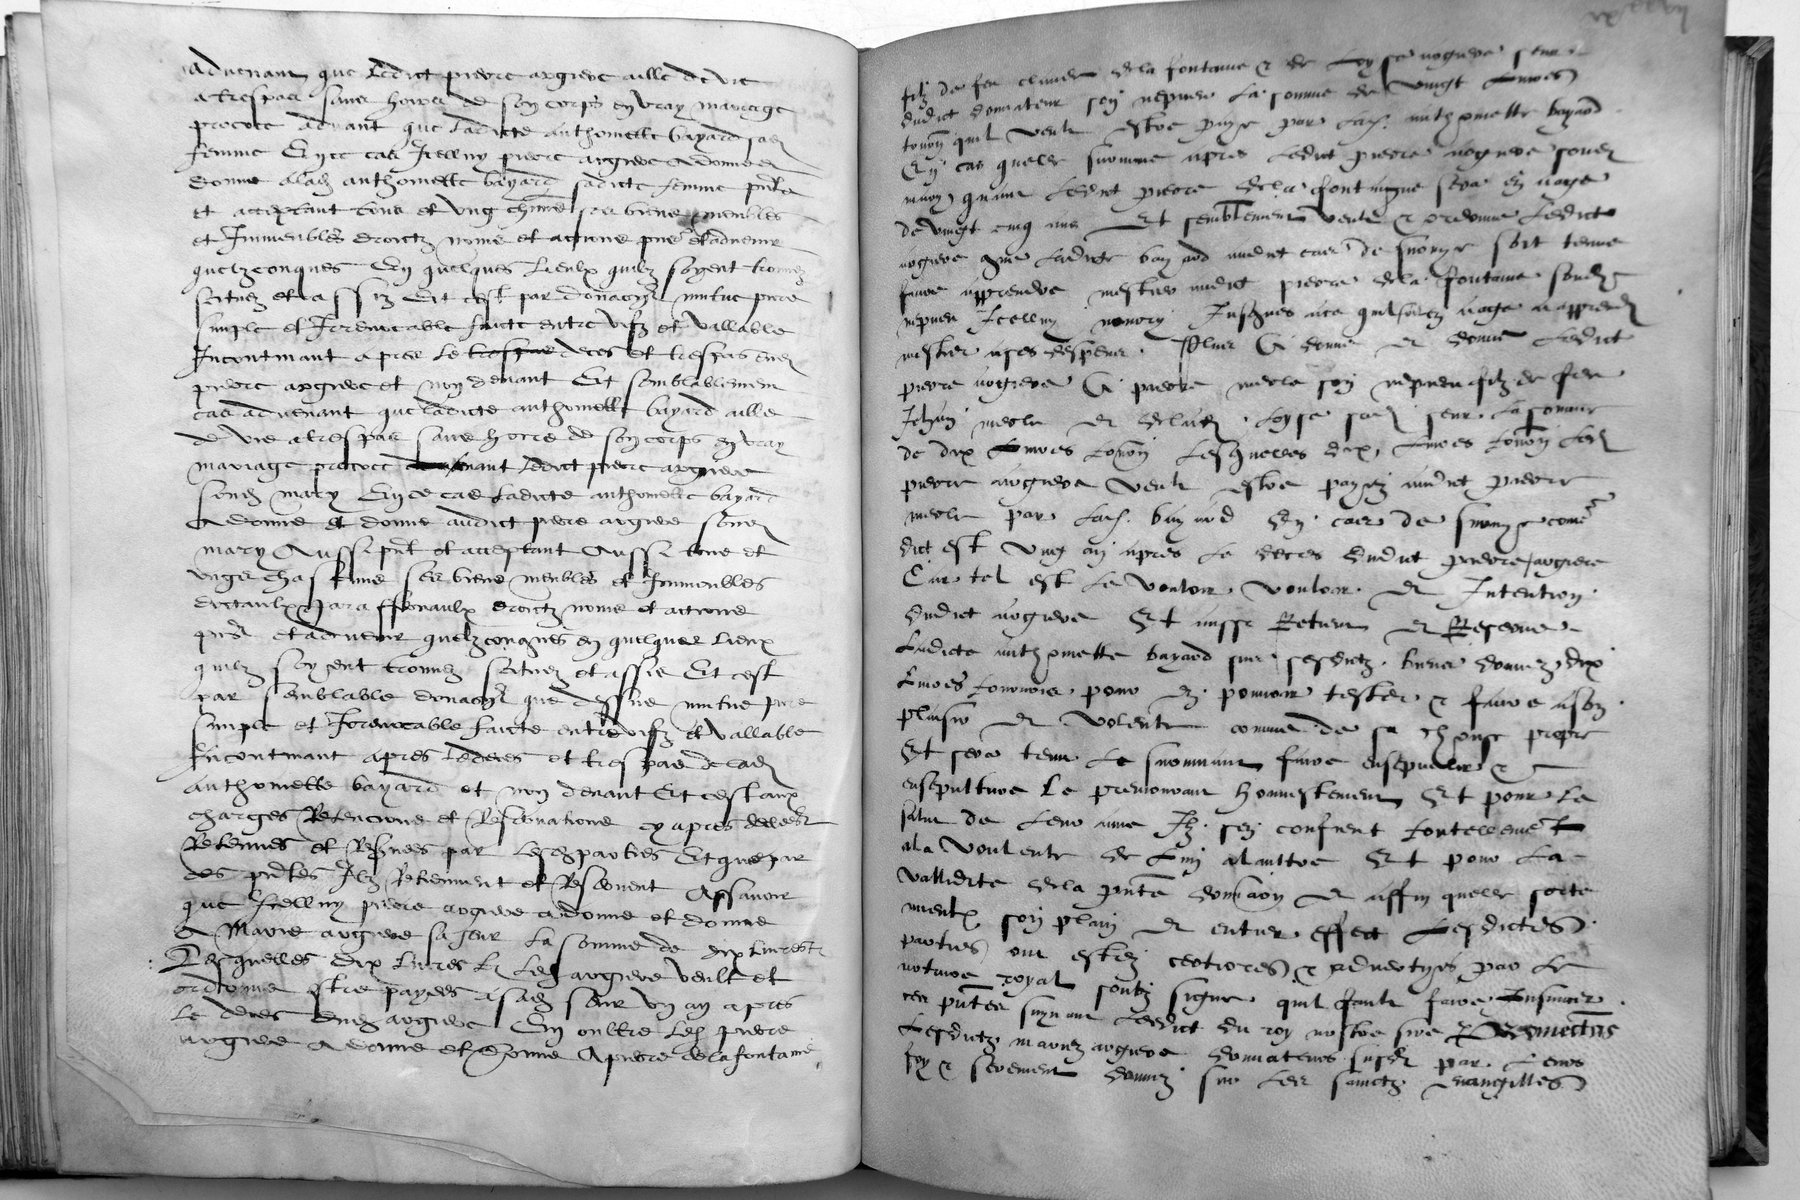 advenant que ledict pierre argieve aille de vie
a trespas sans hoirs de son corps en vray mariage
procree advant que ladicte anthomette bayard sad
femme En ce cas Icelluy pierre argieve a donne et
donne a lad anthomette bayard sadicte femme pnte
et acceptant tous et ung chun ses biens meubles
et Immeubles droictz noms et actions pns et advenir
quelzconques En quelques lieulx quilz soyent trouvez
scituez et assis Et cest par donacion mutue pure
simple et Irrevocable faicte entre vifz et vallable
Incontinant apres le deces et trespas dud
pierre argieve et non devant Et semblablement
cas advenant que ladicte anthomette bayard aille
de vie a trespas sans hoirs de son corps en vray
mariage procree devant ledict pierre argieve
sond mary En ce cas ladicte anthomette bayard
a donne et donne audict pierre argieve sond
mary Aussi pnt et acceptant Aussi tous et
ungs chascuns ses biens meubles et Immeubles
doctaulx paraffernaulx droictz noms et actions
pns et advenir quelzconques en quelques lieux
quilz soyent trouvez scituez et assis Et cest
par semblable donacion que dessus mutue pure
simple et Irrevocable faicte entre vifz et vallable
Incontinant apres le deces et trespas de lad
anthomette bayard et non devant Et cest aux
charges Retencions et Reservations cy apres
Retenues et Reservees par lesd parties Et que par
ces pntes Ilz Retiennent et Reservent Assavoir
que Icelluy pierre argieve a donne et donne
A Marie argieve sa seur la somme de dix livres t
Lesquelles dix livres t led argieve veult et
ordonne estre payees a sad seur ung an apres
le deces dud argieve En oultre led pierre
argieve a donne et donne A pierre de la fontaine
filz de feu claude de la fontaine & de Loyse argieve seur
dudict donnateur son nepveu la somme de vingt livres
tourn quil veult estre paye par lad anthomette bayard
En cas quelle survive apres ledict pierre argieve sond
mary quant ledict pierre de la fontaine sera en aage
de vingt cinq ans Et semblement veult & ordonne ledict
argieve que ladicte bayard audict cas de survye soit tenue
faire apprendre mestier audict pierre de la fontaine sond
nepveu Icelluy nourry Jusques ace quil soit en aage dapprendre
mestier a ses despens Plus A donne et donne ledict
pierre argieve A pierre merle son nepveu filz de feu
Jehan merle et de lad Loyse sad seur la somme
de dix livres tourn Lesquelles dix livres tourn led
pierre argieve veult estre payez audict pierre
merle par lad bayard En cas de survye comme
dict est Ung an apres le deces dudict pierre argieve
Car tel est le vouloir vouloir et Intention
dudict argieve Et aussi Retient et Reserve
Ladicte anthomette bayard sur sesdictz biens donnez dix
livres tournois pour en pouvoir tester & faire a son
plaisir et volente comme de sa chouse propre
Et sera tenu le survivant faire ensepvelir &
ensepulture le premourant honnestement Et pour le
salut de leur ame Ilz sen confient tontellement
a la voulente de lung a laultre Et pour la
vallidite de la pnte donnacion et affin quelle sorte
mieulx son plain et entier effect Lesdictes
parties ont estez certiorees & advertyes par le
notaire royal soubz signe quil fault faire Insinuer
ces pntes suyvant ledict du roy nostre sire Promectans
Lesdictz mariez argieve donnateurs susd par leurs
foy & serement donnez sur les sainctz evangilles